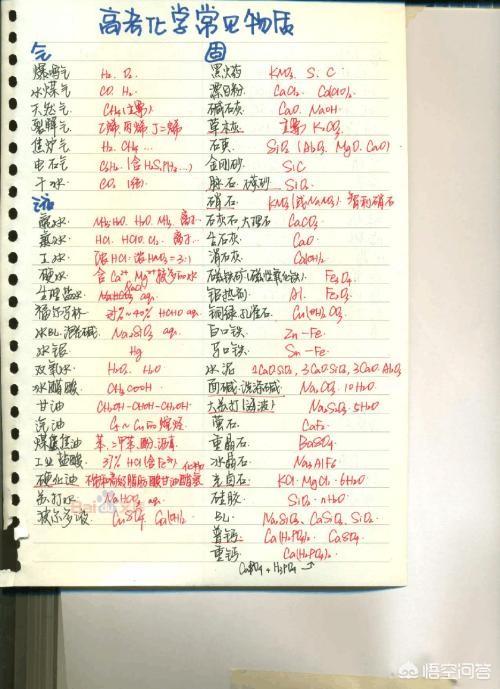 高考化学常见物质
气
爆鸣气 H₂. O₂
水煤气 CO. H₂.
天然气 CH₄(主要)
裂解气 乙烯 丙烯 丁二烯
焦炉气 H₂. CH₄ ...
电石气 C₂H₂. (含H₂S, PH₃...)
干冰 CO₂
液
氨水 NH₃·H₂O. H₂O. NH₃. 离子
氯水 HCl. HClO. Cl₂. 离子
王水 浓HCl:浓HNO₃=3:1
硬水 含Ca²⁺ Mg²⁺
生理盐水 aq.
福尔马林 40% HCHO aq.
水玻. 泡花碱 Na₂SiO₃ aq.
水银 Hg
双氧水 H₂O₂. H₂O
冰醋酸 CH₃COOH
甘油 CH₂OH-CHOH-CH₂OH
汽油 C₅~C₁₁ 烷烃
煤焦油 苯.二甲苯.酚.沥青
工业盐酸 37% HCl (含Fe³⁺)
硬化油 硬脂酸甘油酯
苏打水 aq.
CuSO₄ Ca(OH)₂
固
黑火药 KNO₃. S. C
漂白粉 CaCl₂. Ca(ClO)₂.
碱石灰 CaO. NaOH.
草木灰 主要 K₂CO₃
石英 SiO₂
金刚砂 SiC
SiO₂.
硝石 KNO₃ (或NaNO₃) 智利硝石
石灰石 大理石 CaCO₃
生石灰 CaO.
消石灰 Ca(OH)₂
磁铁矿(磁性氧化铁). Fe₃O₄.
铝热剂 Al. Fe₂O₃
铜绿.孔雀石. Cu₂(OH)₂CO₃
白口铁 Zn-Fe
马口铁. Sn-Fe
水泥 2CaO·SiO₂, 3CaO·SiO₂, 3CaO·Al₂O₃
面碱.洗涤碱 Na₂CO₃·10H₂O
大苏打 Na₂S₂O₃·5H₂O
萤石 CaF₂
重晶石 BaSO₄
冰晶石 Na₃AlF₆
光卤石 KCl·MgCl₂·6H₂O
硅胶 SiO₂·nH₂O
玻. Na₂SiO₃, CaSiO₃, SiO₂
普钙 Ca(H₂PO₄)₂ CaSO₄
重钙 Ca(H₂PO₄)₂
悟空问答